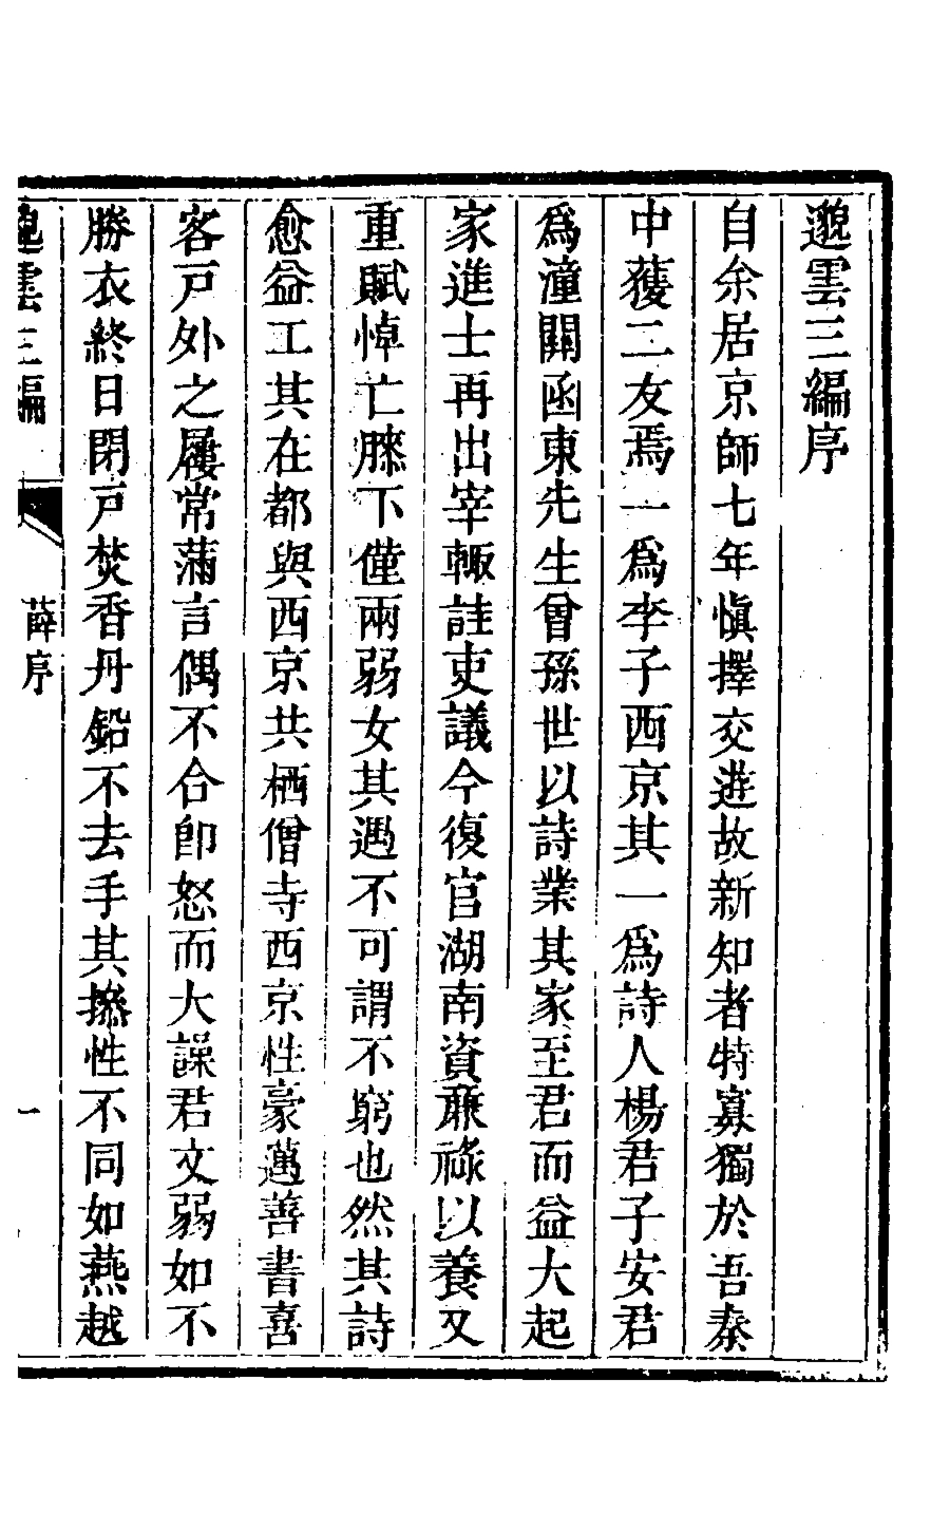 邈雲三編序
自余居京師七年慎擇交遊故新知者特寡獨於吾秦
中獲二友焉一為李子西京其一為詩人楊君子安君
為潼關函東先生曾孫世以詩業其家至君而益大起
家進士再出宰輙詿吏議今復官湖南資廉祿以養又
重賦悼亡膝下僅兩弱女其遇不可謂不窮也然其詩
愈益工其在都與西京共栖僧寺西京性豪邁善書喜
客戸外之屨常滿言偶不合卽怒而大譟君文弱如不
勝衣終日閉戸焚香丹鉛不去手其撚性不同如燕越
邈雲三編
薛序
一